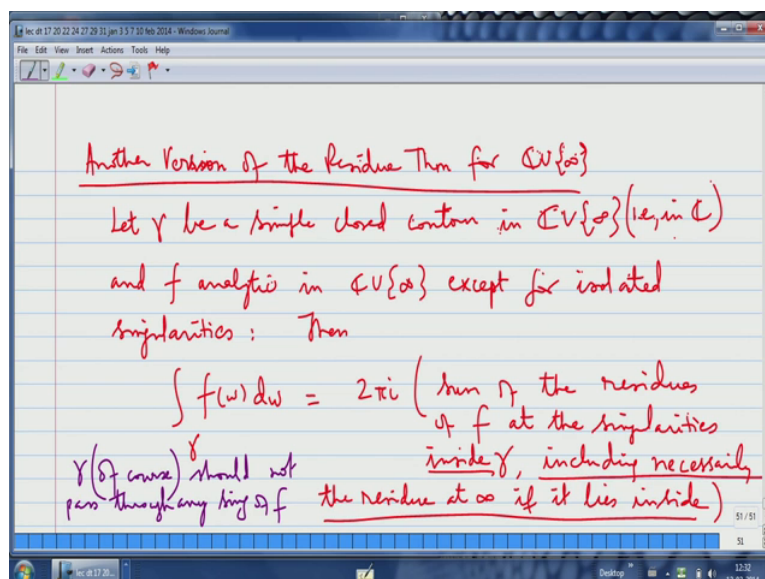 lec dt 17 20 22 24 27 29 31 jan 3 5 7 10 feb 2014 - Windows Journal
File Edit View Insert Actions Tools Help
Another Version of the Residue Thm for ℂ∪{∞}
Let γ be a simple closed contour in ℂ∪{∞} (i.e., in ℂ)
and f analytic in ℂ∪{∞} except for isolated
singularities: Then
∫γ f(w) dw = 2πi ( sum of the residues
of f at the singularities
inside γ, including necessarily
the residue at ∞ if it lies inside )
γ (of course) should not
pass through any sing of f
51 / 51
51
lec dt 17 20...
Desktop
12:32